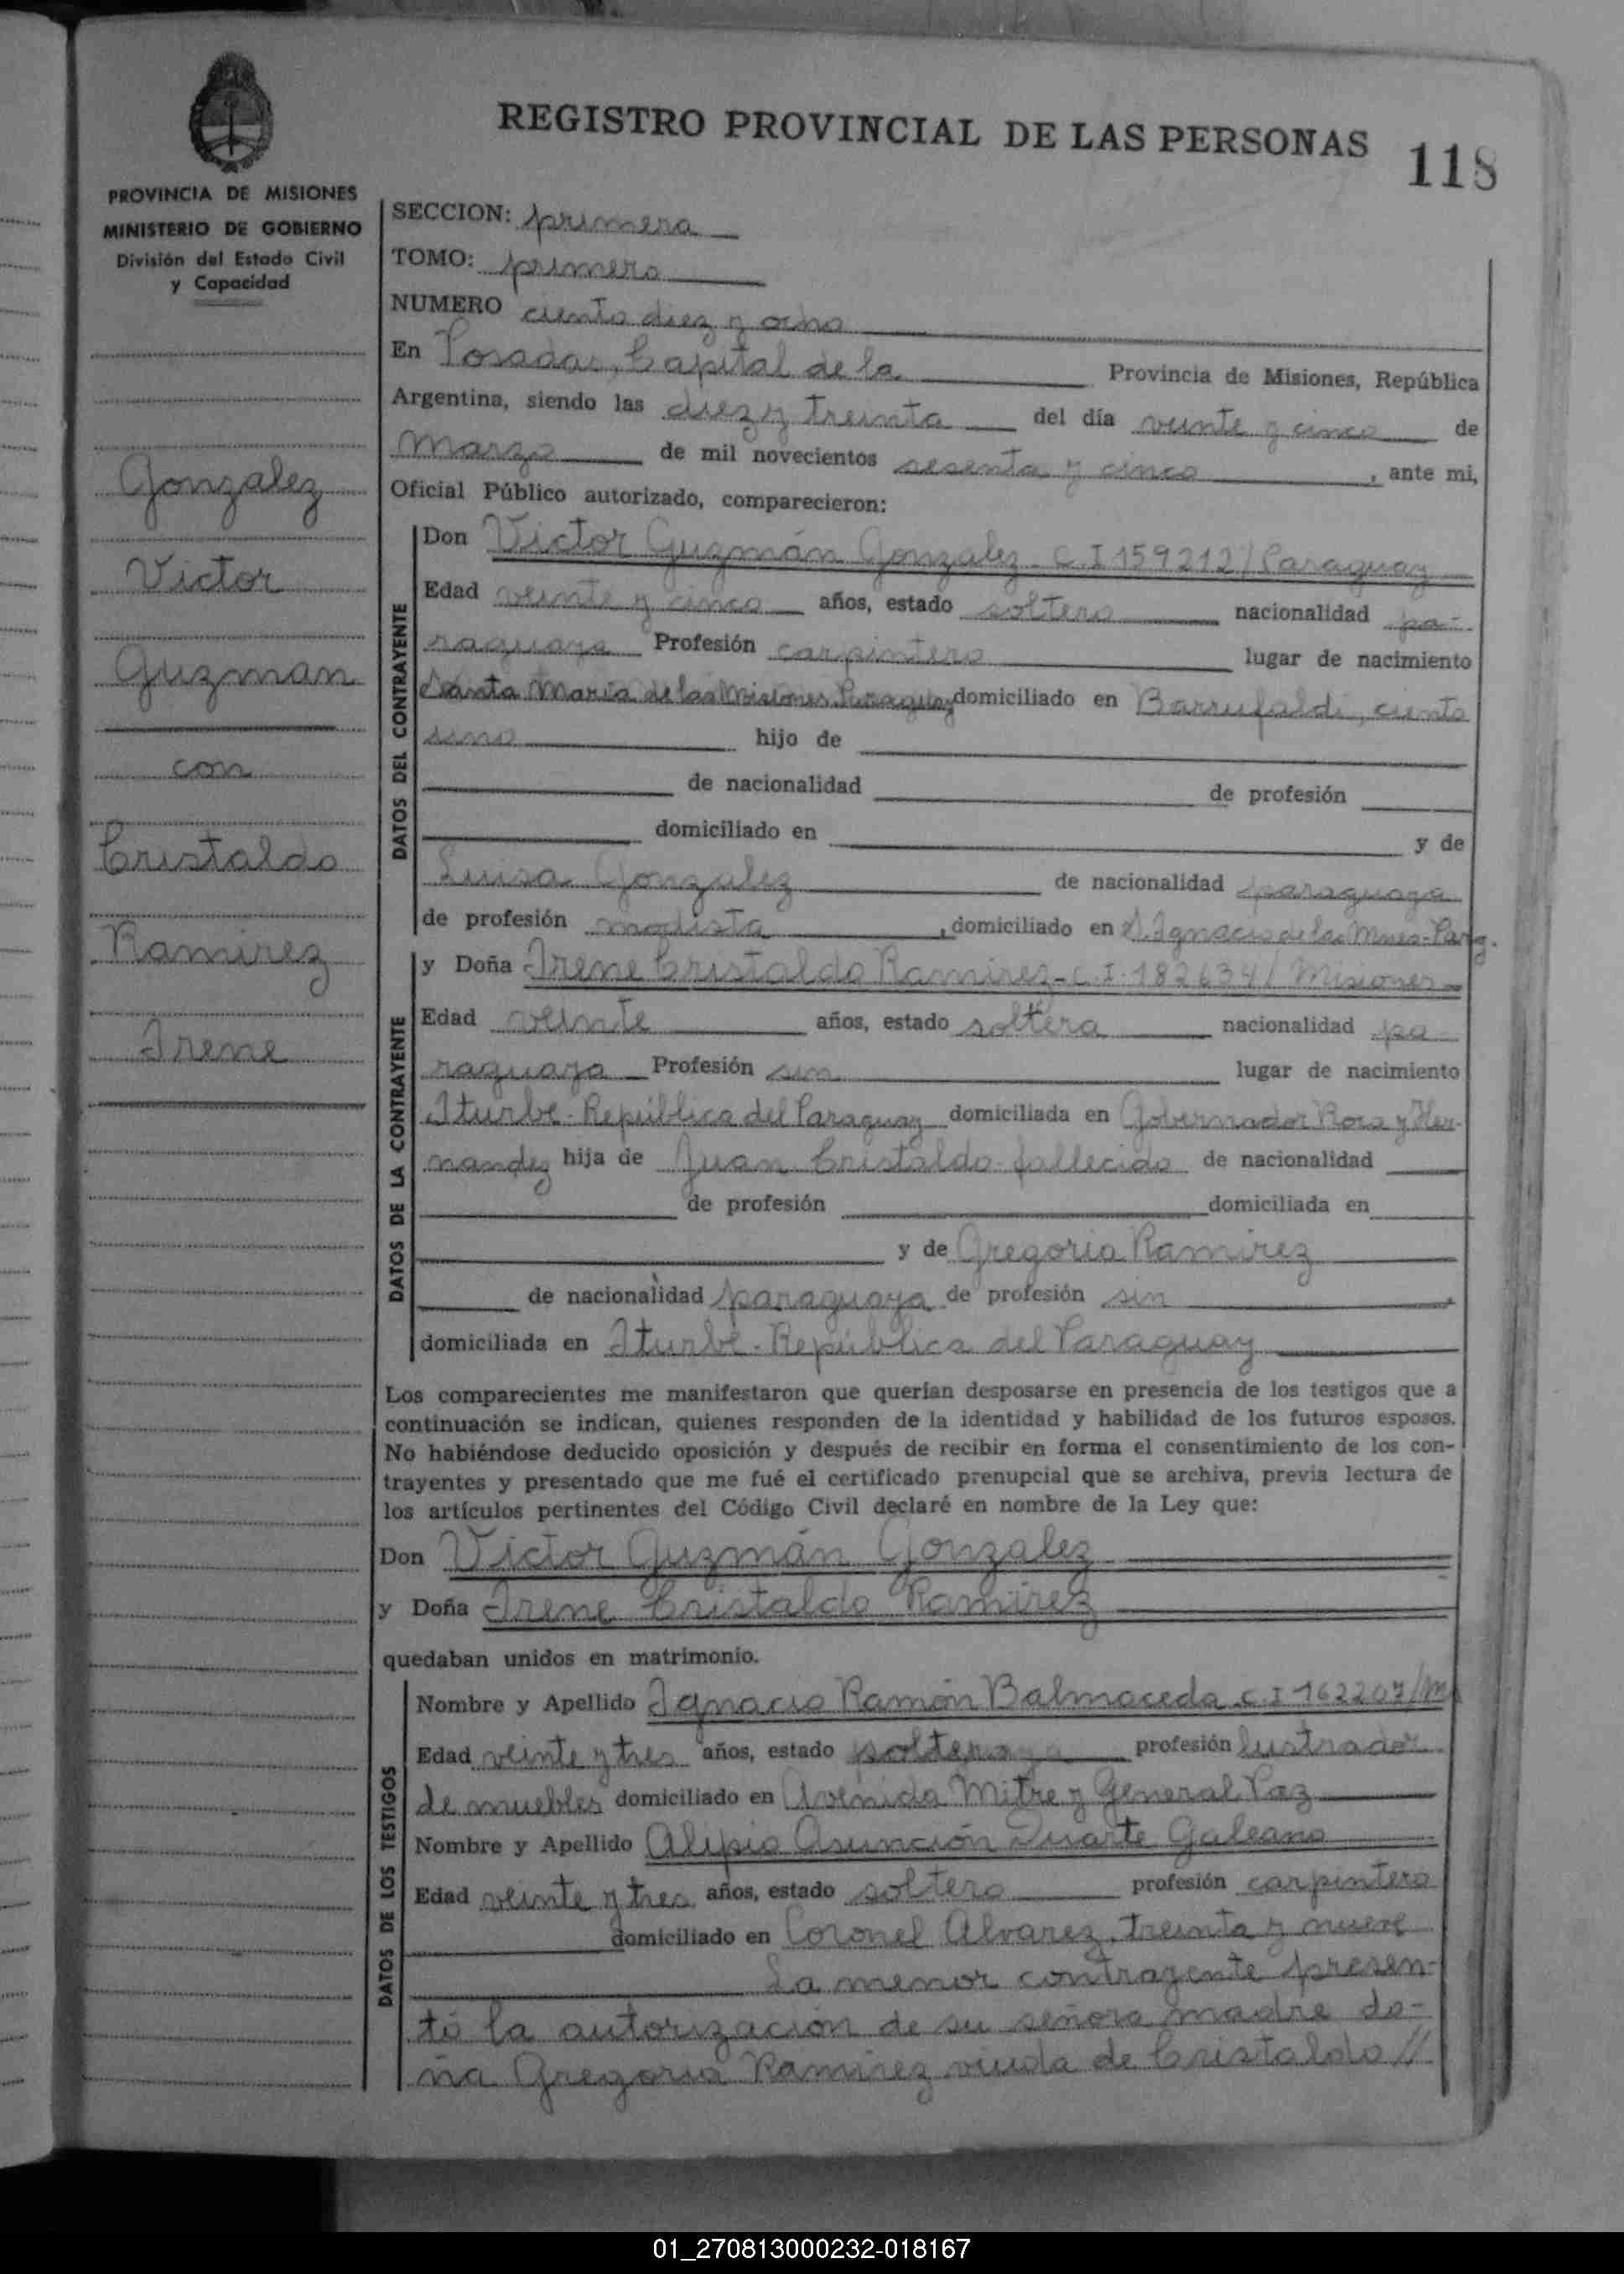 REGISTRO PROVINCIAL DE LAS PERSONAS 118
PROVINCIA DE MISIONES
MINISTERIO DE GOBIERNO
División del Estado Civil
y Capacidad
Gonzalez
Victor
Guzman
con
Cristaldo
Ramirez
Irene
SECCION: primera
TOMO: primero
NUMERO ciento diez y ocho
En Posadas, Capital de la Provincia de Misiones, República
Argentina, siendo las diez y treinta del día veinte y cinco de
marzo de mil novecientos sesenta y cinco, ante mi,
Oficial Público autorizado, comparecieron:
DATOS DEL CONTRAYENTE
Don Victor Guzmán Gonzalez - C.I 159212/Paraguay
Edad veinte y cinco años, estado soltero nacionalidad pa-
raguaya Profesión carpintero lugar de nacimiento
Santa María de las Misiones Paraguay domiciliado en Barrufaldi, ciento
hijo de
de nacionalidad de profesión
domiciliado en y de
Luisa Gonzalez de nacionalidad paraguaya
de profesión modista, domiciliado en S. Ignacio de las Mnes-Parg.
DATOS DE LA CONTRAYENTE
y Doña Irene Cristaldo Ramirez - C.I. 182634/ Misiones
Edad veinte años, estado soltera nacionalidad pa
raguaya Profesión sin lugar de nacimiento
Iturbe - República del Paraguay domiciliada en Gobernador Roca y Her-
nandez hija de Juan Cristaldo - fallecido de nacionalidad
de profesión domiciliada en
y de Gregoria Ramirez
de nacionalidad paraguaya de profesión sin
domiciliada en Iturbe - República del Paraguay
Los comparecientes me manifestaron que querían desposarse en presencia de los testigos que a
continuación se indican, quienes responden de la identidad y habilidad de los futuros esposos.
No habiéndose deducido oposición y después de recibir en forma el consentimiento de los con-
trayentes y presentado que me fué el certificado prenupcial que se archiva, previa lectura de
los artículos pertinentes del Código Civil declaré en nombre de la Ley que:
Don Victor Guzmán Gonzalez
y Doña Irene Cristaldo Ramirez
quedaban unidos en matrimonio.
DATOS DE LOS TESTIGOS
Nombre y Apellido Ignacio Ramón Balmaceda C.I 162207/M
Edad veinte y tres años, estado soltero profesión lustrador
de muebles domiciliado en Avenida Mitre y General Paz
Nombre y Apellido Alipio Asunción Duarte Galeano
Edad veinte y tres años, estado soltero profesión carpintero
domiciliado en Coronel Alvarez, treinta y nueve
La menor contrayente presen-
tó la autorización de su señora madre do-
ña Gregoria Ramirez viuda de Cristaldo //
01_270813000232-018167